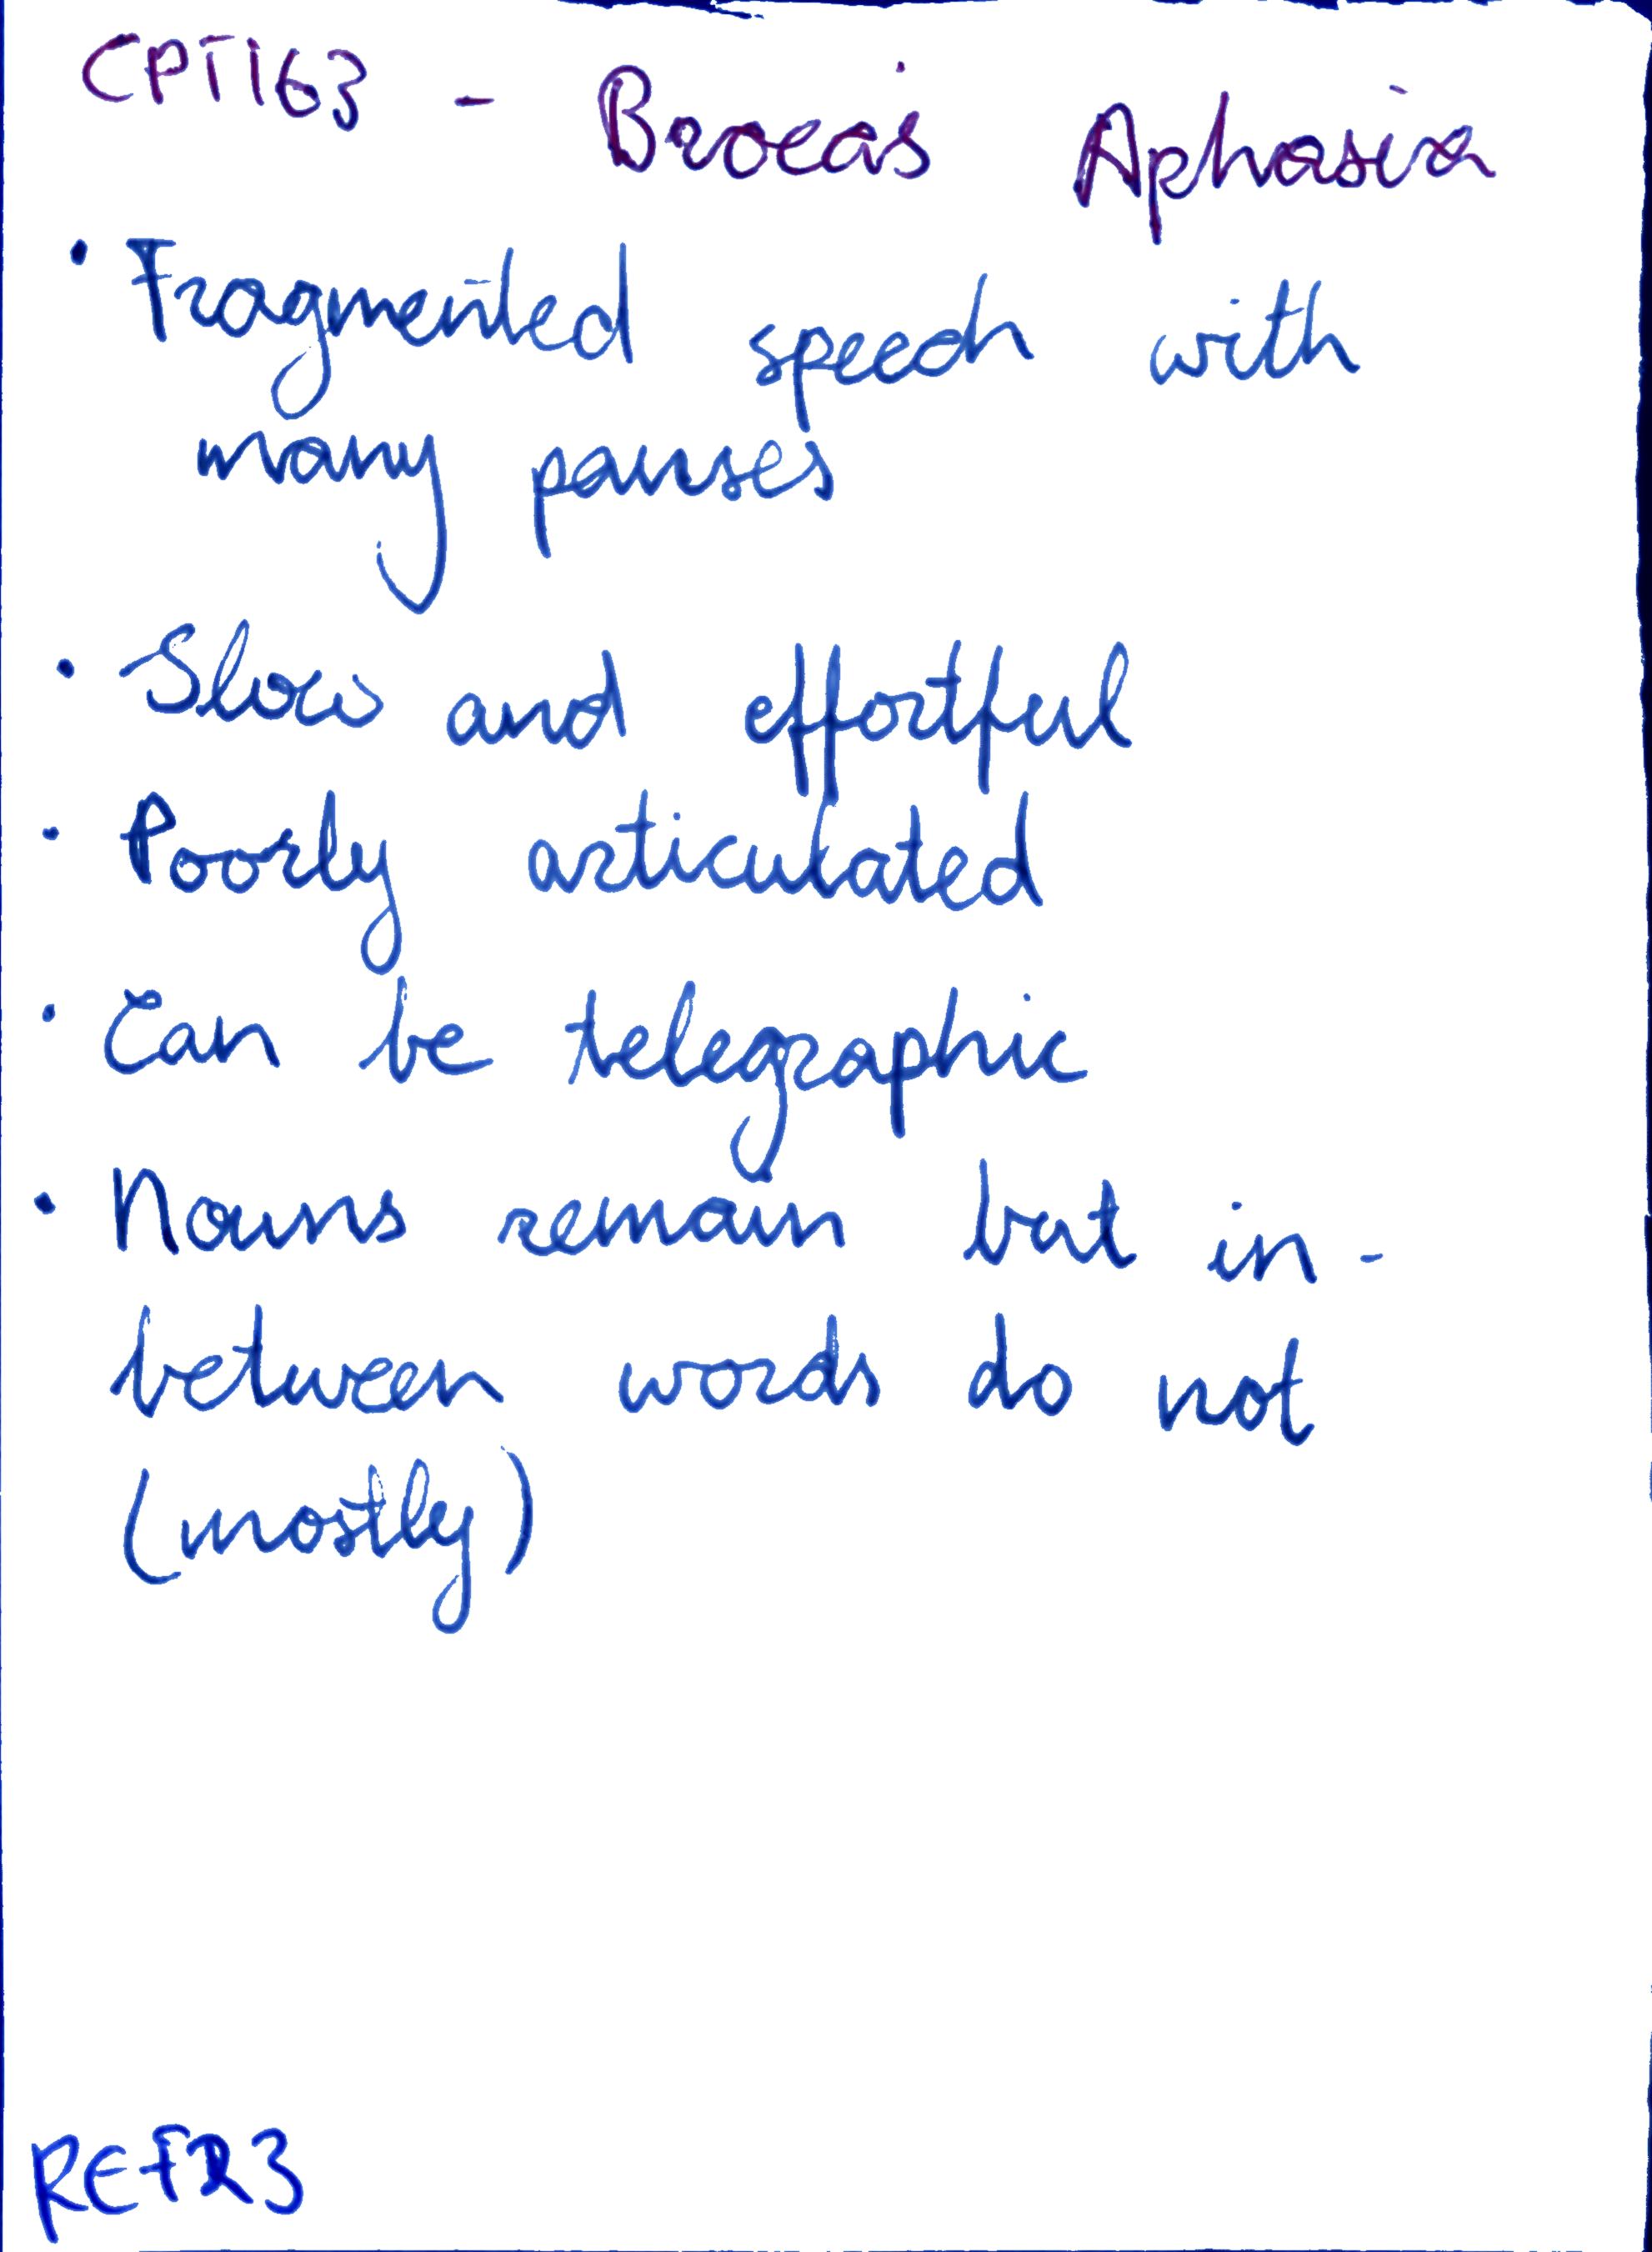 CPT163 - Broca's Aphasia
• Fragmented speech with
many pauses
• Slow and effortful
• Poorly articulated
• Can be telegraphic
• Nouns remain but in-
between words do not
(mostly)
REFR3